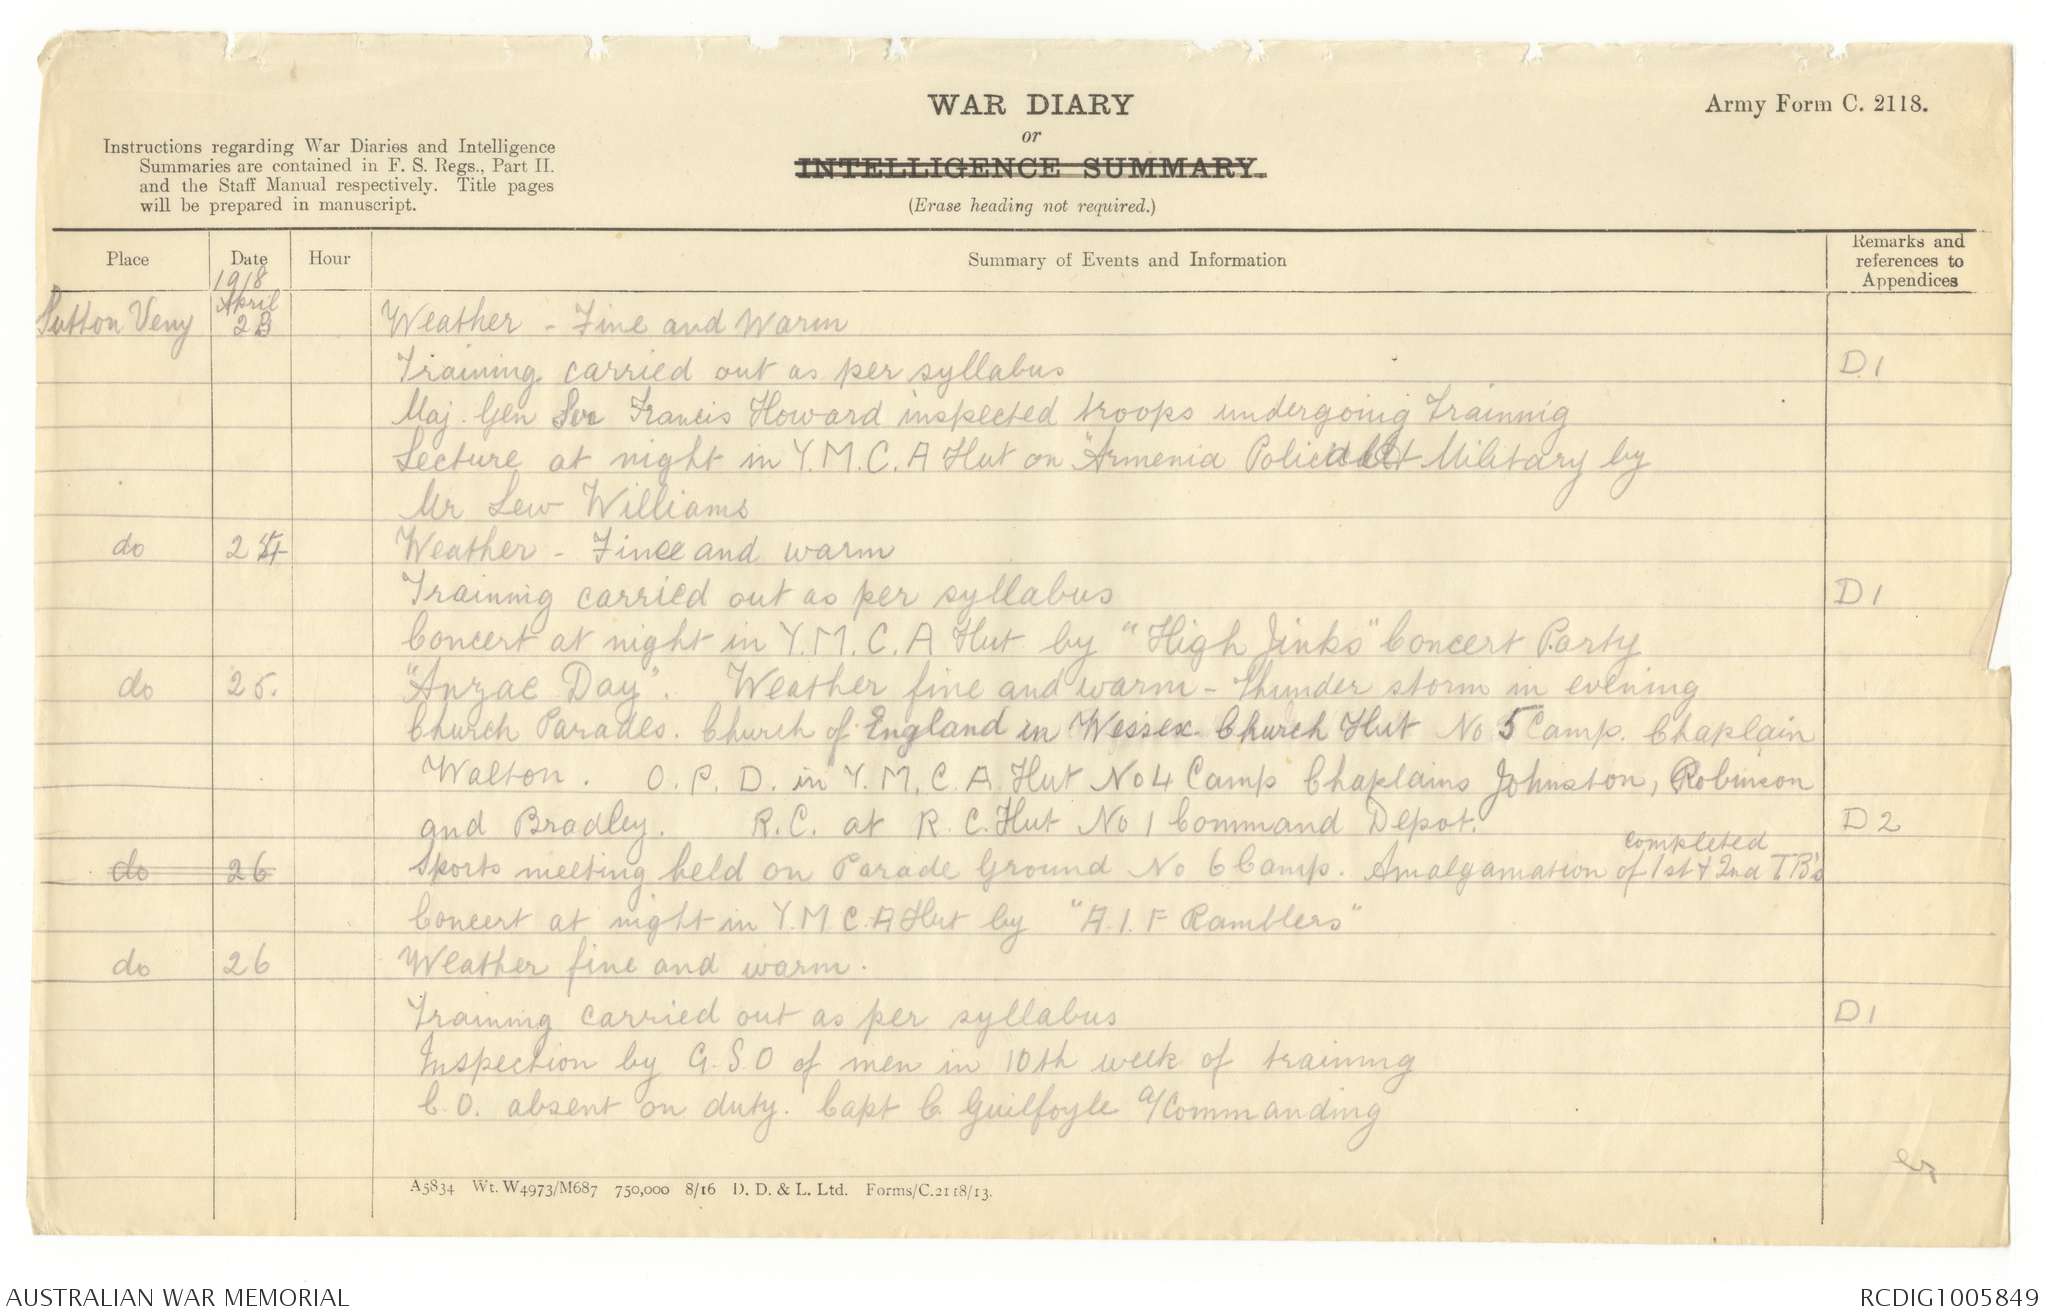 WAR DIARY
or
INTELLIGENCE SUMMARY.
(Erase heading not required.)
Army Form C. 2118.
Instructions regarding War Diaries and Intelligence
Summaries are contained in F. S. Regs., Part II.
and the Staff Manual respectively. Title pages
will be prepared in manuscript.
Place Date Hour Summary of Events and Information Remarks and references to Appendices
1918
April
Sutton Veny 23 Weather - Fine and Warm
Training carried out as per syllabus D1
Maj. Gen Sir Francis Howard inspected troops undergoing Training
Lecture at night in Y.M.C.A Hut on "Armenia Political & Military by
Mr Lew Williams
do 24 Weather - Fine and warm
Training carried out as per syllabus D1
Concert at night in Y.M.C.A Hut by "High Jinks" Concert Party
do 25. "Anzac Day". Weather fine and warm - Thunder storm in evening
Church Parades. Church of England in Wessex Church Hut No 5 Camp. Chaplain
Walton. O.P.D. in Y.M.C.A. Hut No 4 Camp Chaplains Johnston, Robinson
and Bradley. R.C. at R.C. Hut No 1 Command Depot. D2
completed
do 26 Sports meeting held on Parade Ground No 6 Camp. Amalgamation of 1st & 2nd TB's
Concert at night in Y.M.C.A Hut by "A.I.F Ramblers"
do 26 Weather fine and warm.
Training carried out as per syllabus D1
Inspection by G.S.O of men in 10th week of training
C.O. absent on duty. Capt C. Guilfoyle a/Commanding
A5834 Wt. W4973/M687 750,000 8/16 D. D. & L. Ltd. Forms/C.2118/13.
AUSTRALIAN WAR MEMORIAL
RCDIG1005849